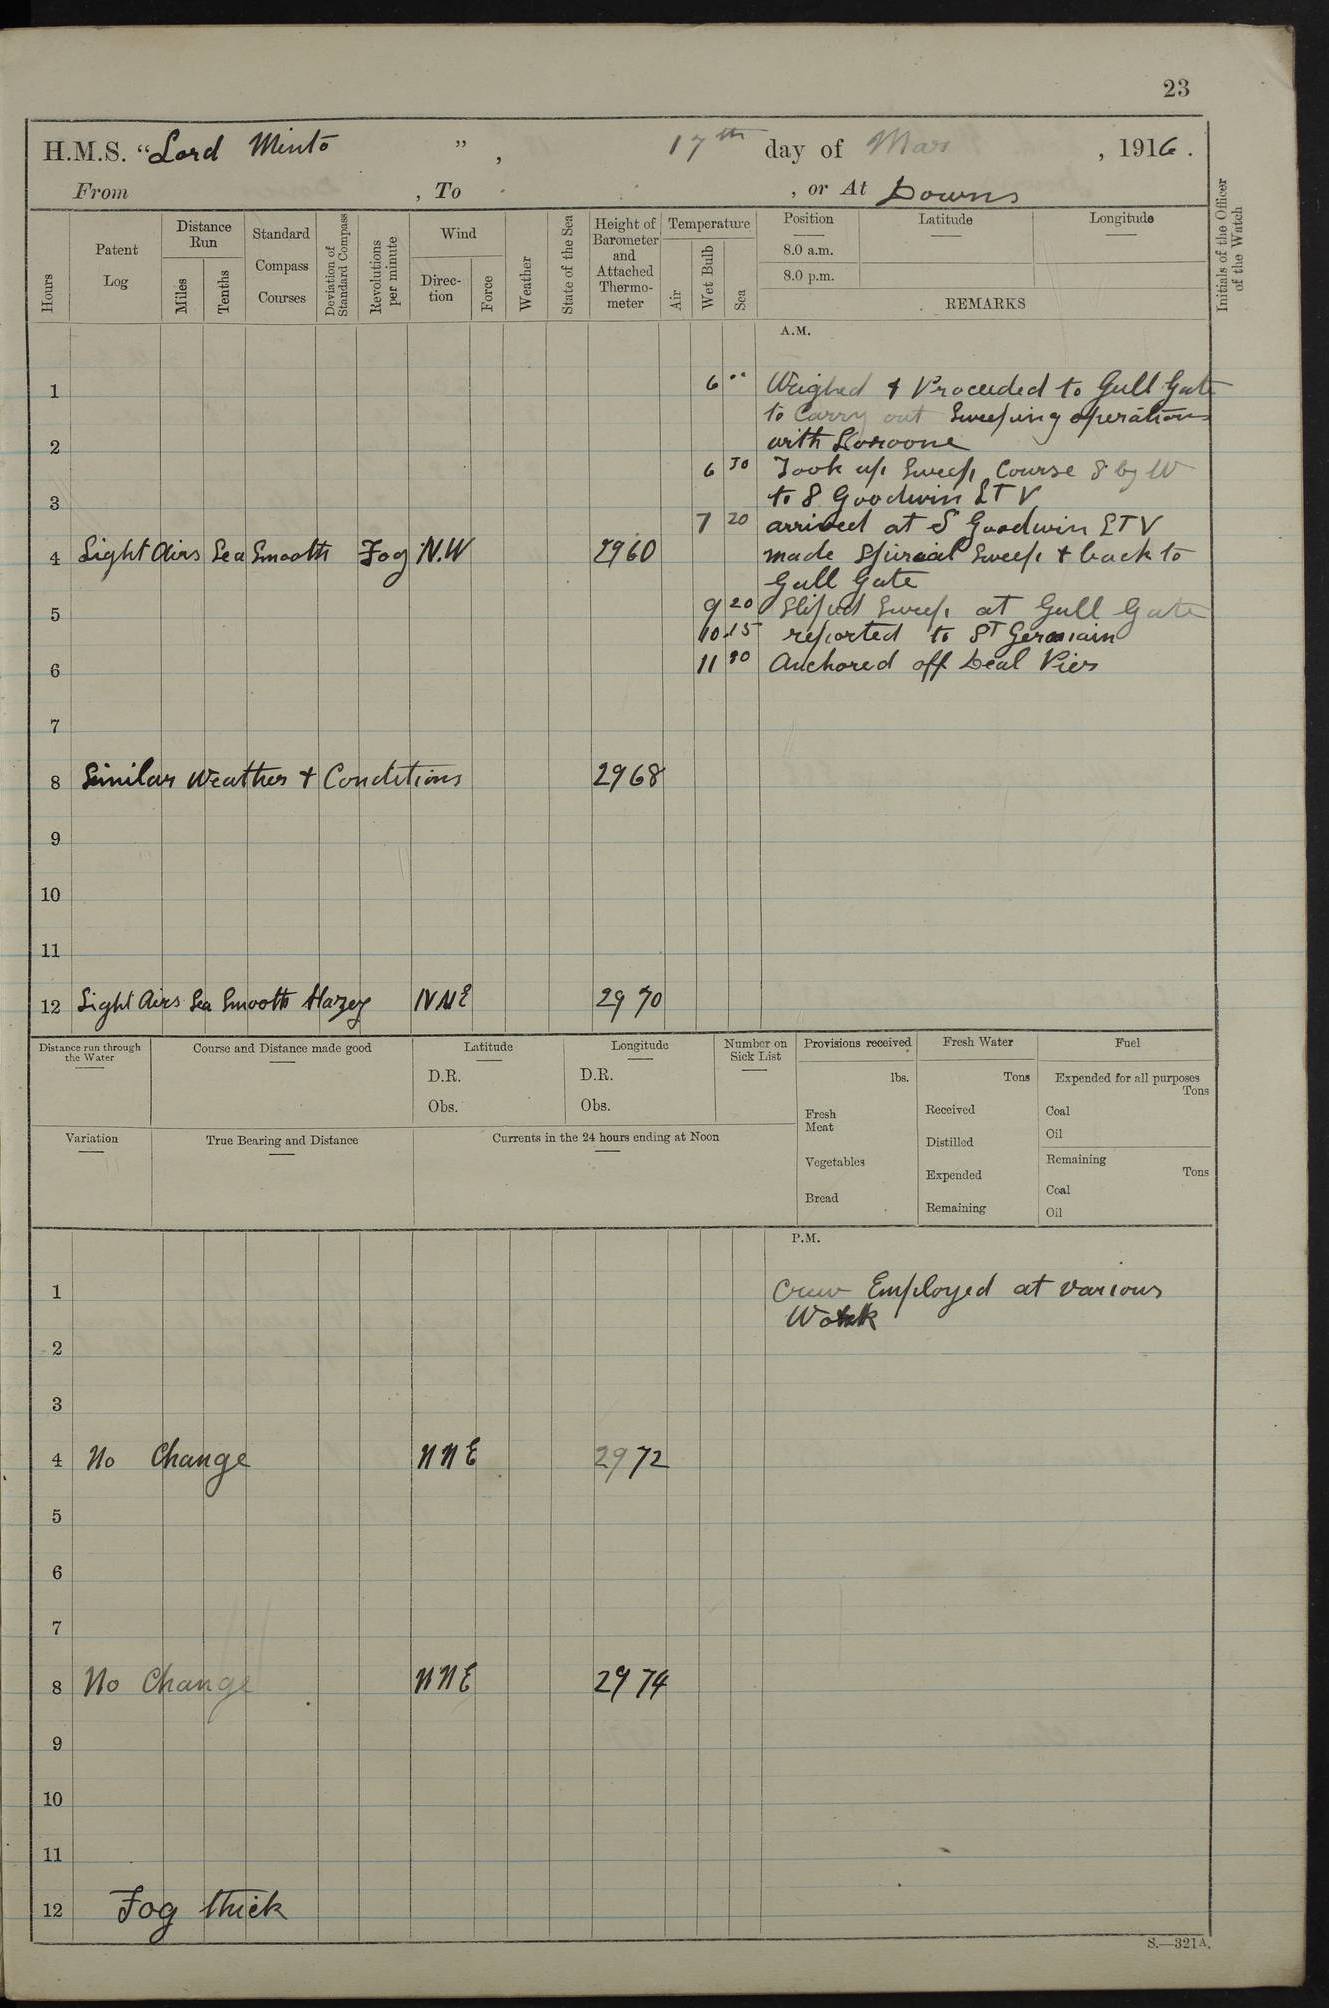 23
H.M.S. “Lord Minto ” , 17th day of Mar , 1916.
From , To , or At Downs
Hours
Patent Log
Distance Run
Miles
Tenths
Standard Compass Courses
Deviation of Standard Compass
Revolutions per minute
Wind
Direc- tion
Force
Weather
State of the Sea
Height of Barometer and Attached Thermo- meter
Temperature
Air
Wet Bulb
Sea
Position
8.0 a.m.
8.0 p.m.
Latitude
Longitude
REMARKS
Initials of the Officer of the Watch
A.M.
1 6 •• Weighed & Proceeded to Gull Gate
to Carry out Sweeping operations
2 with
6 30 Took up Sweep Course S by W
3 to S Goodwin LTV
7 20 arrived at S Goodwin LTV
4 Light Airs Sea Smooth Fog N.W 2960 made Special Sweep & back to
Gull Gate
5 9 20 Sliped Sweep at Gull Gate
10.15 reported to St Germain
6 11 30 Anchored off Deal Pier
7
8 Similar Weather & Conditions 2968
9
10
11
12 Light Airs Sea Smooth Hazey NNE 2970
Distance run through the Water
Course and Distance made good
Latitude
D.R.
Obs.
Longitude
D.R.
Obs.
Number on Sick List
Provisions received
lbs.
Fresh Meat
Vegetables
Bread
Fresh Water
Tons
Received
Distilled
Expended
Remaining
Fuel
Expended for all purposes
Tons
Coal
Oil
Remaining
Tons
Coal
Oil
Variation
True Bearing and Distance
Currents in the 24 hours ending at Noon
P.M.
1 Crew Employed at various
Work
2
3
4 No Change NNE 2972
5
6
7
8 No Change NNE 2974
9
10
11
12 Fog thick
S.—321A.